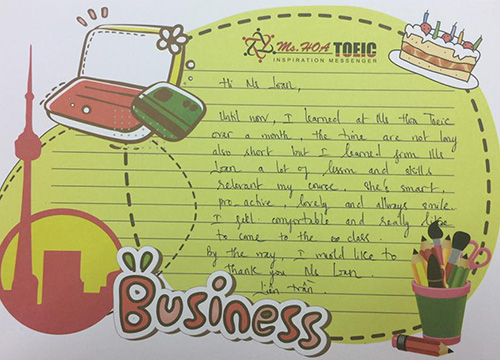 Ms. HOA TOEIC
INSPIRATION MESSENGER
Hi Ms Loan,
Until now, I learned at Ms Hoa Toeic
over a month, the time are not long
also short but I learned from Ms
Loan a lot of lesson and skills
relevant my course. She's smart,
pro active, lovely and allways smile.
I feel comportable and really like
to come to the class.
By the way, I would like to
thank you Ms Loan.
Liên Trần.
Business